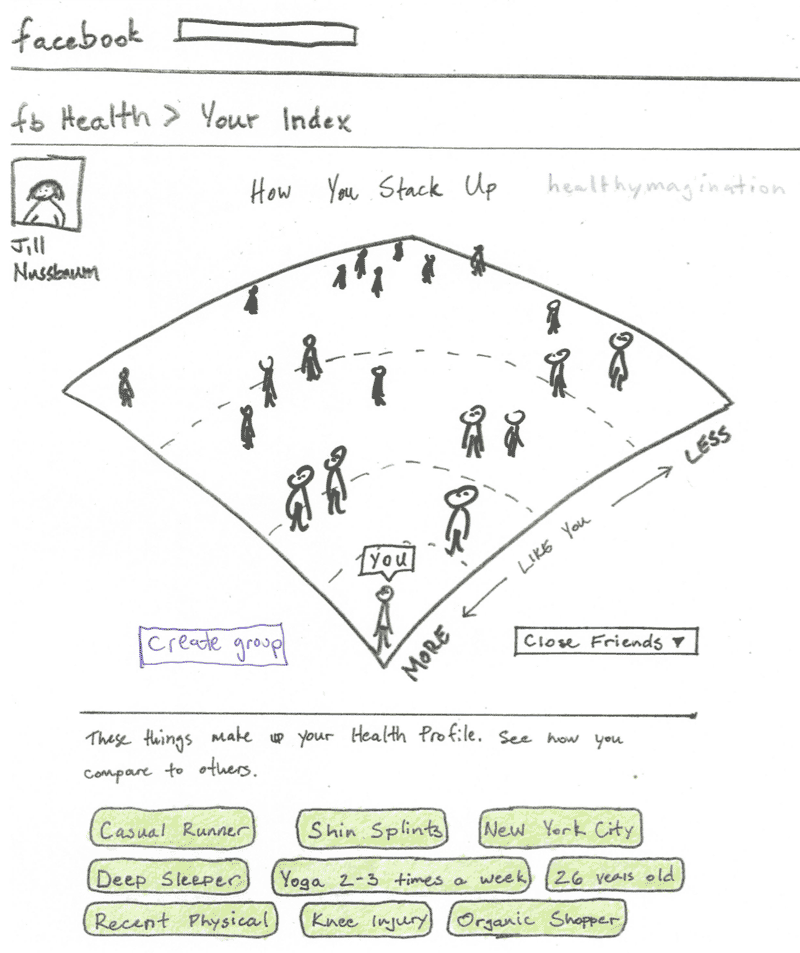 facebook
fb Health > Your Index
How You Stack Up healthymagination
Jill
Nussbaum
LESS
LIKE YOU
YOU
MORE
Create group
Close Friends ▼
These things make up your Health Profile. See how you
compare to others.
Casual Runner Shin Splints New York City
Deep Sleeper Yoga 2-3 times a week 26 years old
Recent Physical Knee Injury Organic Shopper